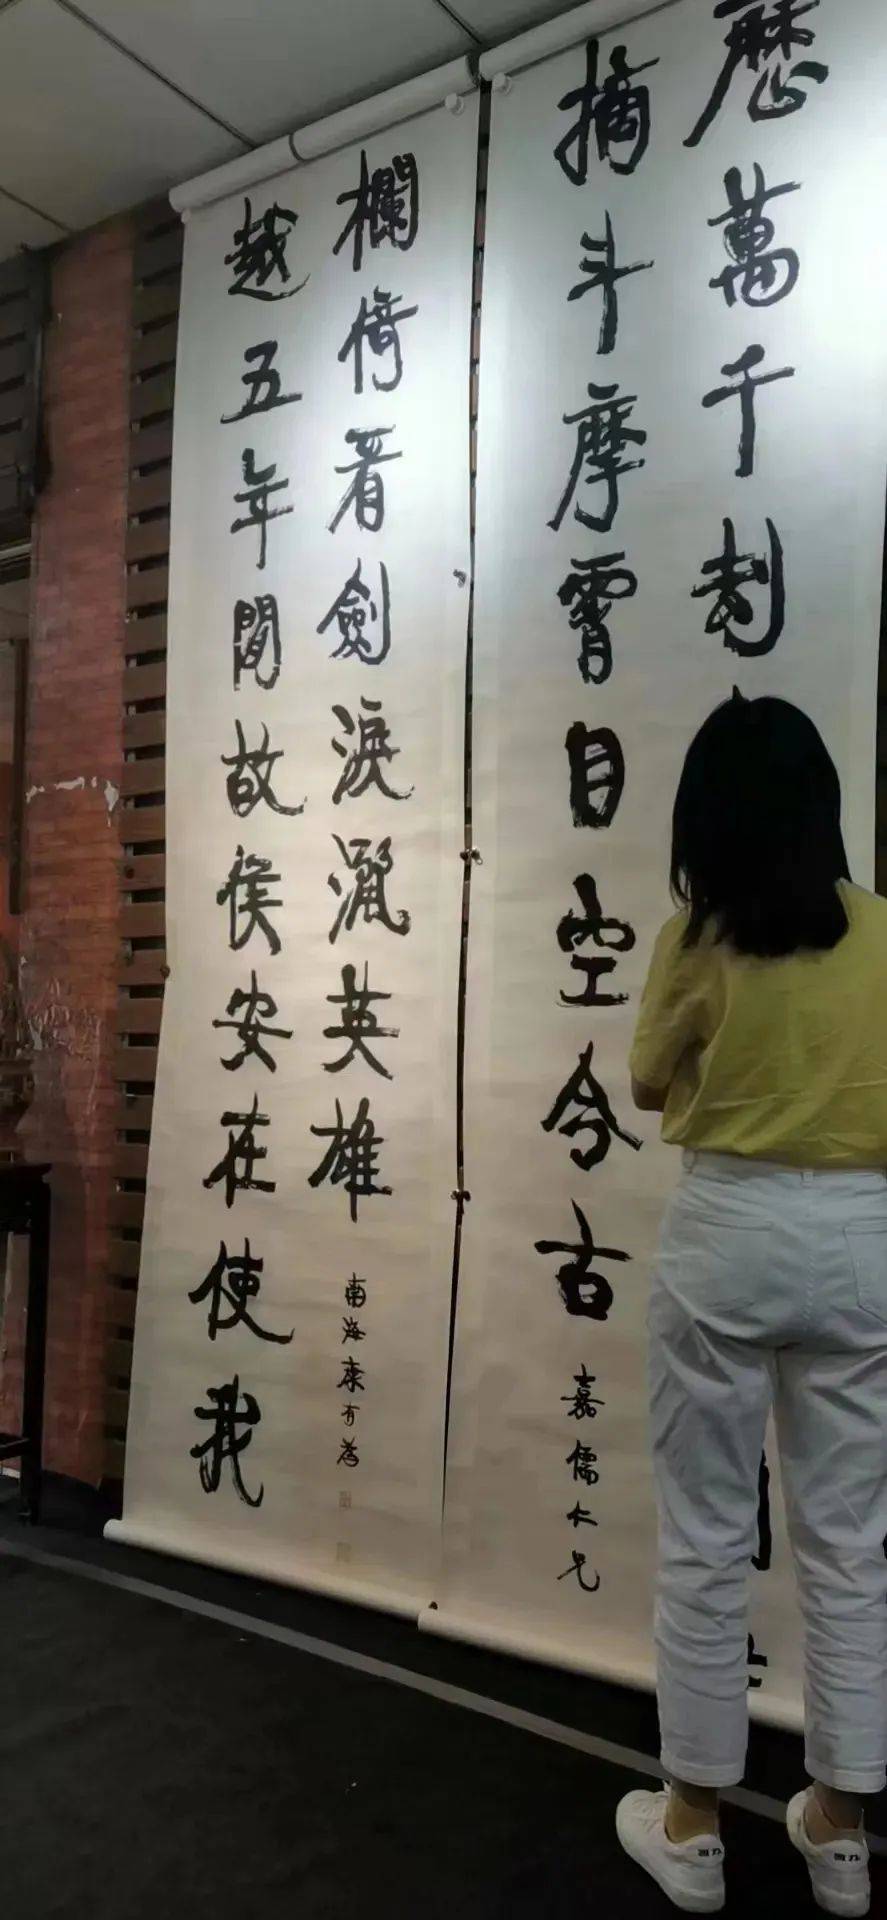 歷萬千刧
摘斗摩霄目空今古
嘉儒仁兄
越五年間故侯安在使我
欄倚看劍淚灑英雄
南海康有為